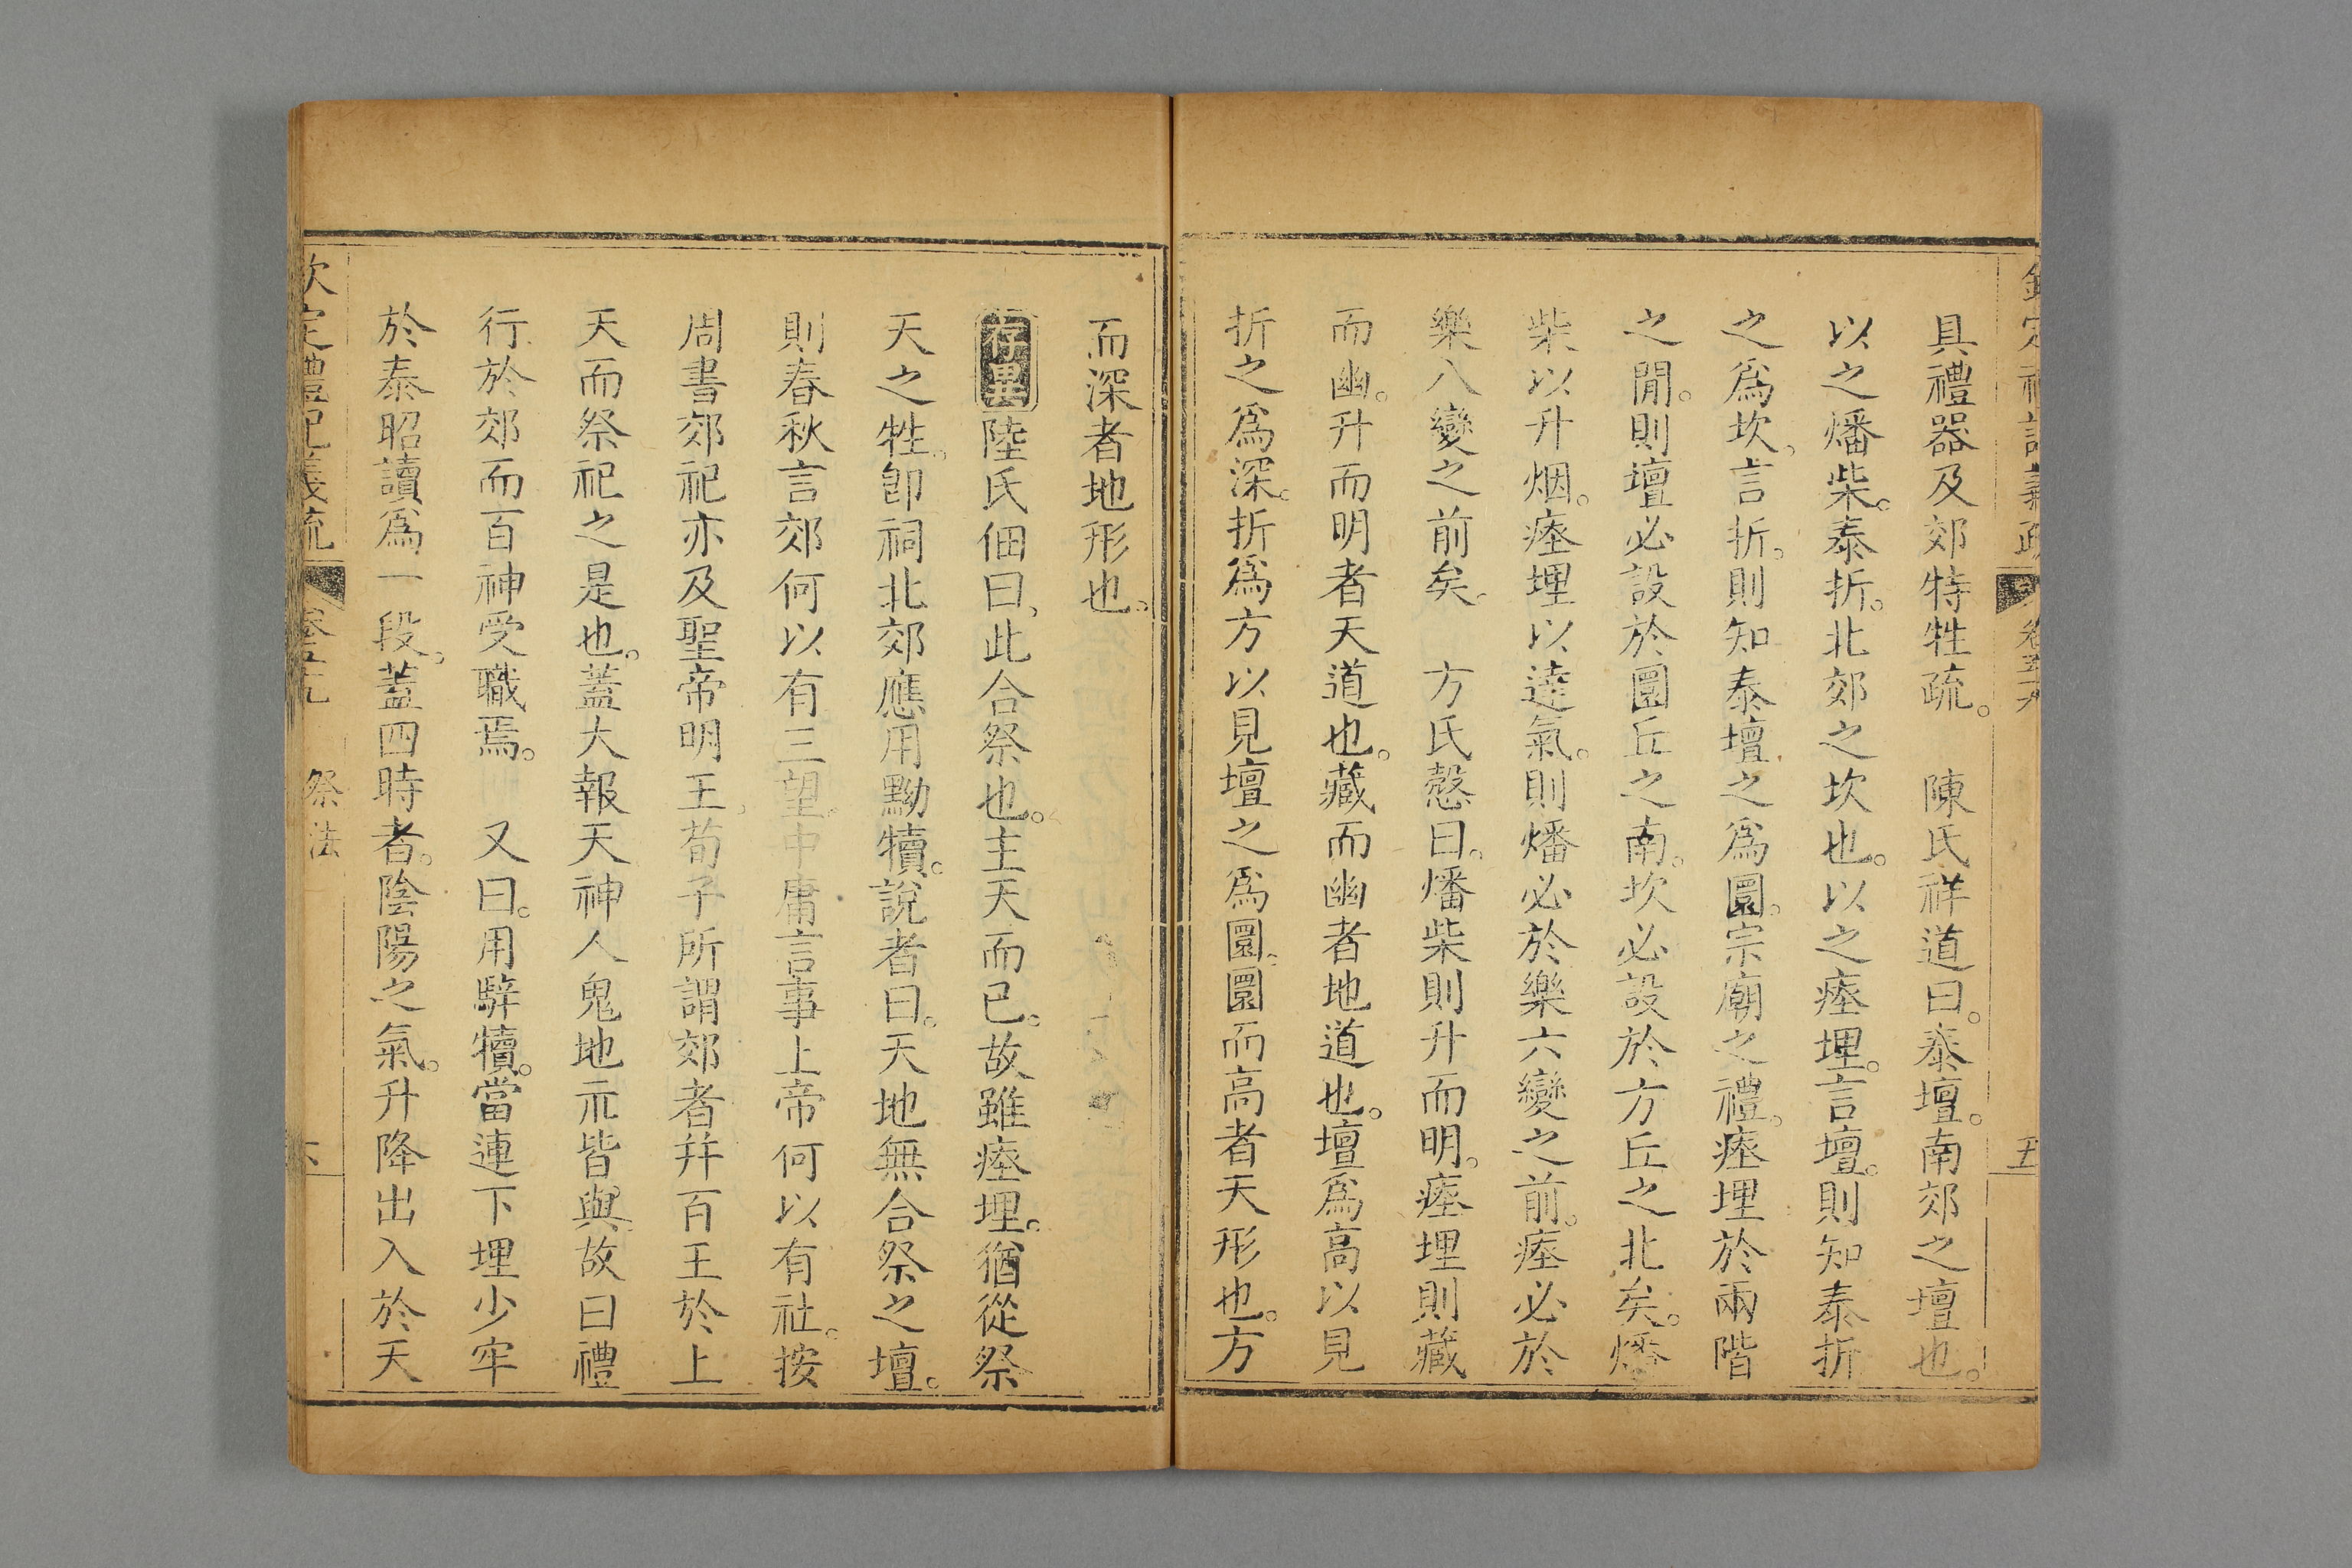 欽定禮記義疏 卷五十九 五
具禮器及郊特牲疏。 陳氏祥道曰。泰壇。南郊之壇也。
以之燔柴。泰折。北郊之坎也。以之瘞埋。言壇。則知泰折
之爲坎。言折。則知泰壇之爲圜。宗廟之禮。瘞埋於兩階
之閒。則壇必設於圜丘之南。坎必設於方丘之北矣。燔
柴以升烟。瘞埋以達氣。則燔必於樂六變之前。瘞必於
樂八變之前矣。 方氏慤曰。燔柴則升而明。瘞埋則藏
而幽。升而明者天道也。藏而幽者地道也。壇爲高以見
折之爲深。折爲方以見壇之爲圜。圜而高者天形也。方
而深者地形也。
存異陸氏佃曰。此合祭也。主天而已。故雖瘞埋。猶從祭
天之牲。卽祠北郊應用黝犢。說者曰。天地無合祭之壇。
則春秋言郊何以有三望。中庸言事上帝何以有社。按
周書郊祀亦及聖帝明王。荀子所謂郊者并百王於上
天而祭祀之是也。蓋大報天神人鬼地示皆與。故曰禮
行於郊而百神受職焉。 又曰。用騂犢。當連下埋少牢
於泰昭讀爲一段。蓋四時者。陰陽之氣。升降出入於天
欽定禮記義疏 卷五十九 祭法 六